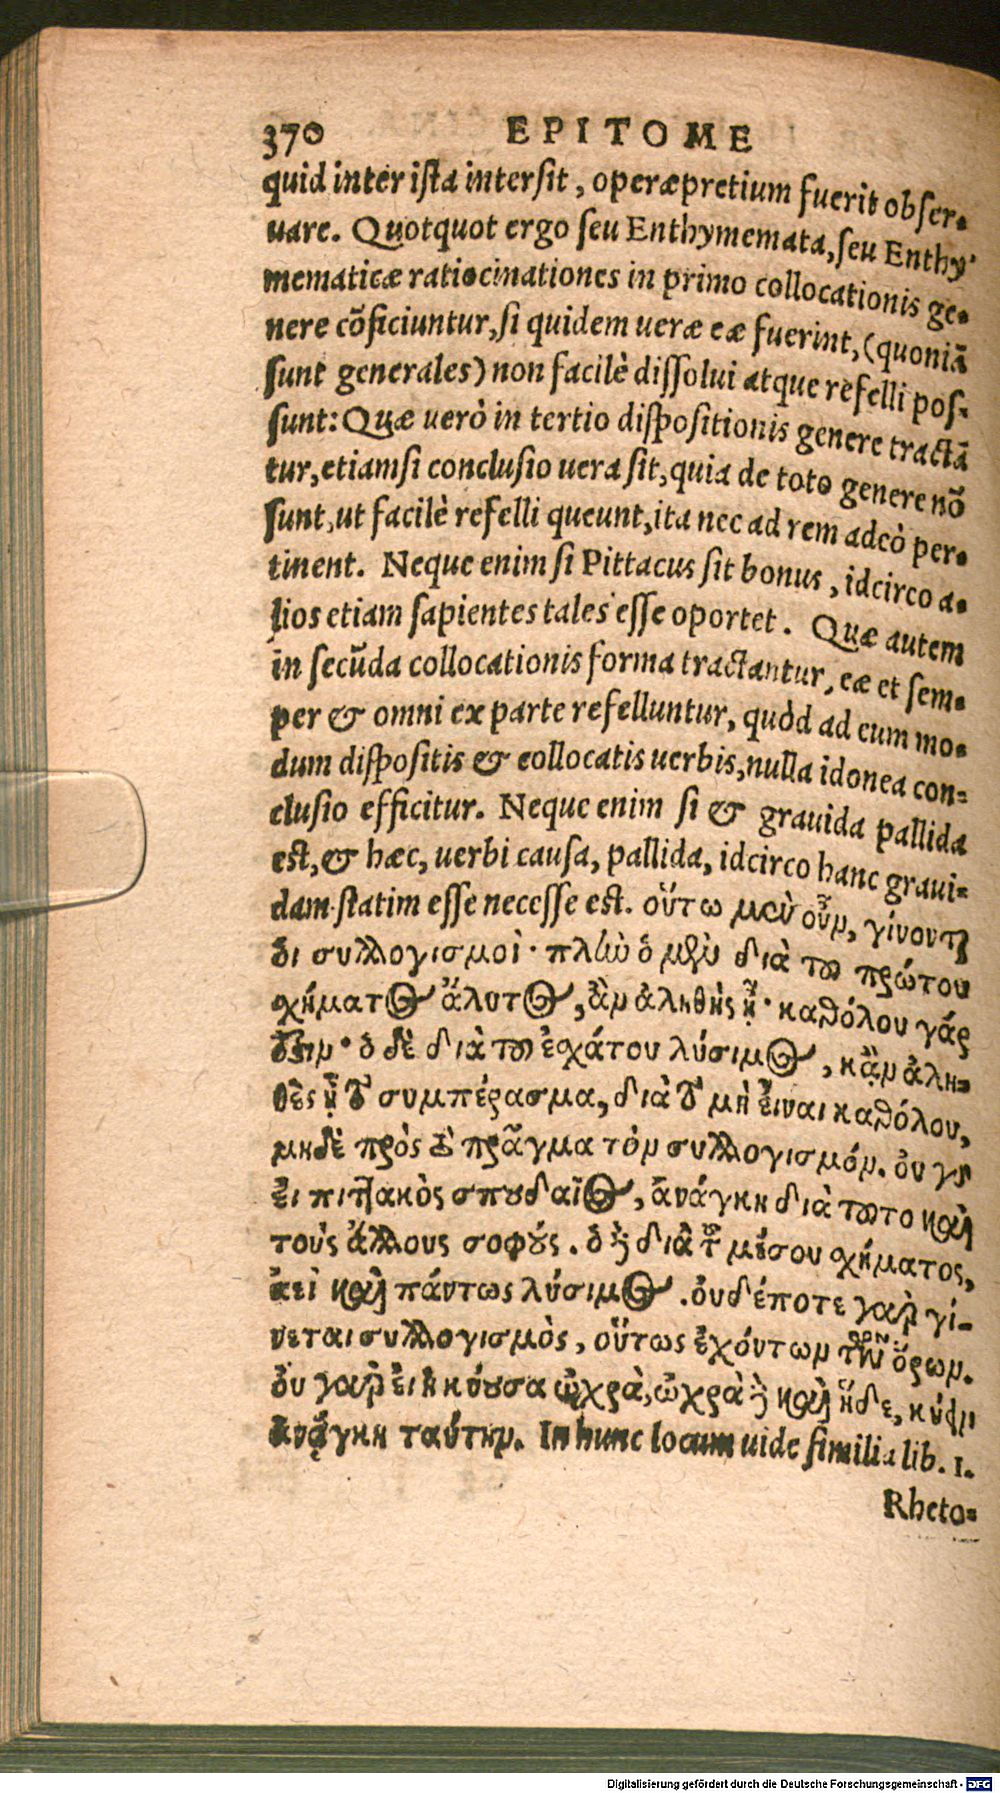 370 EPITOME
quid inter ista intersit, operæpretium fuerit obser-
uare. Quotquot ergo seu Enthymemata, seu Enthy-
mematicæ ratiocinationes in primo collocationis ge-
nere cōficiuntur, si quidem ueræ eæ fuerint, (quoniā
sunt generales) non facilè dissolui atque refelli pos-
sunt: Quæ uerò in tertio dispositionis genere tractā
tur, etiamsi conclusio uera sit, quia de toto genere nō
sunt, ut facilè refelli queunt, ita nec ad rem adeò per-
tinent. Neque enim si Pittacus sit bonus, idcirco a-
lios etiam sapientes tales esse oportet. Quæ autem
in secūda collocationis forma tractantur, eæ et sem-
per & omni ex parte refelluntur, quòd ad eum mo-
dum dispositis & collocatis uerbis, nulla idonea con-
clusio efficitur. Neque enim si & grauida pallida
est, & hæc, uerbi causa, pallida, idcirco hanc graui-
dam statim esse necesse est. οὕτω μὲν οὖν, γίνονται
δι συλλογισμοὶ· πλὴν ὁ μὲν διὰ τοῦ πρώτου
σχήματος ἄλυτος, ἂν ἀληθὴς ᾖ· καθόλου γάρ
ἐστιν· ὁ δὲ διὰ τοῦ ἐσχάτου λύσιμος, κἂν ἀλη-
θὲς ᾖ τὸ συμπέρασμα, διὰ τὸ μὴ εἶναι καθόλου,
μηδὲ πρὸς τὸ πρᾶγμα τὸν συλλογισμόν. οὐ γὰρ
εἰ πιττακὸς σπουδαῖος, ἀνάγκη διὰ τοῦτο καὶ
τοὺς ἄλλους σοφούς. ὁ δὲ διὰ τοῦ μέσου σχήματος,
ἀεὶ καὶ πάντως λύσιμος. οὐδέποτε γὰρ γί-
νεται συλλογισμὸς, οὕτως ἐχόντων τῶν ὅρων.
οὐ γὰρ εἰ ἡ κύουσα ὠχρὰ, ὠχρὰ δὲ καὶ ἥδε, κύειν
ἀνάγκη ταύτην. In hunc locum uide similia lib. 1.
Rheto-
Digitalisierung gefördert durch die Deutsche Forschungsgemeinschaft - DFG